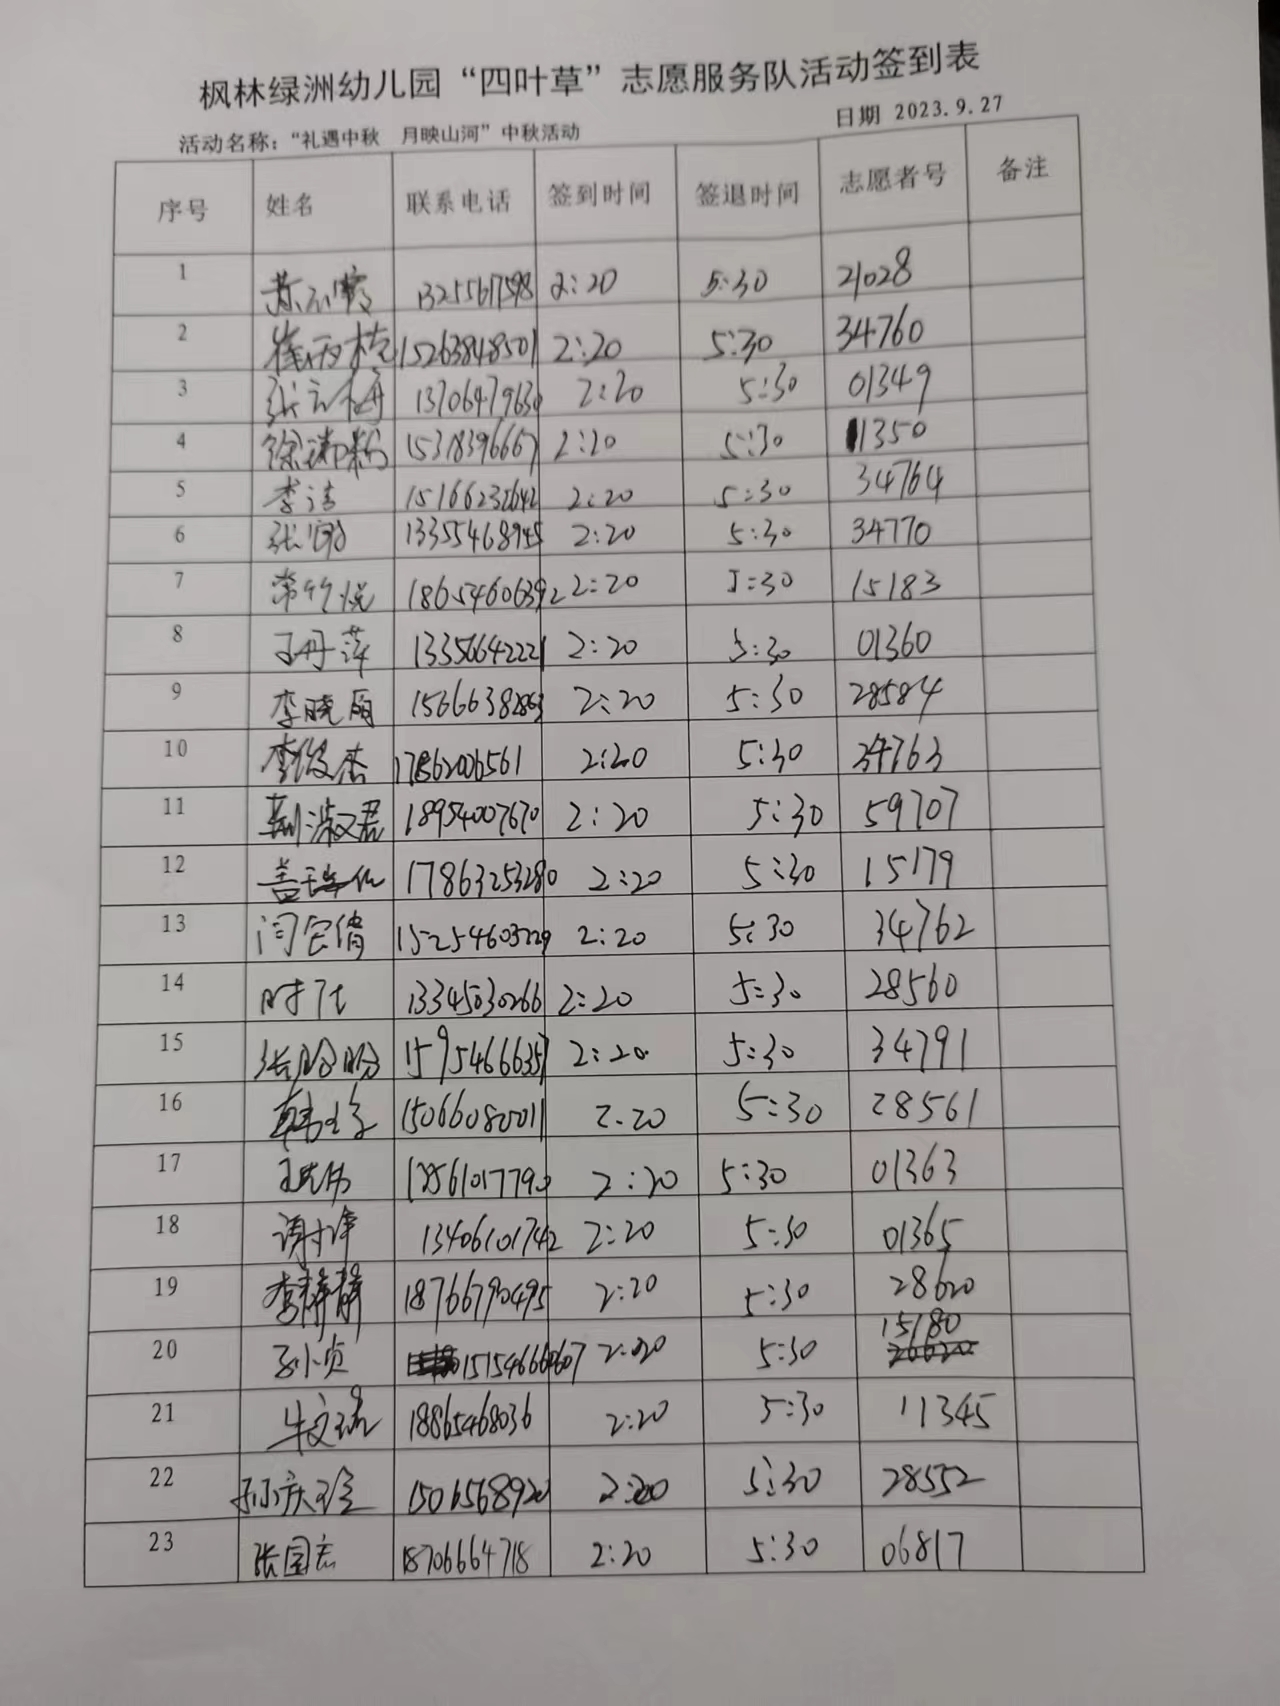 枫林绿洲幼儿园“四叶草”志愿服务队活动签到表
日期 2023.9.27
活动名称：“礼遇中秋 月映山河”中秋活动
序号 姓名 联系电话 签到时间 签退时间 志愿者号 备注
1 2:20 5:30 21028
2 15263848501 2:20 5:30 34760
3 张 13706479630 2:20 5:30 01349
4 徐 15318396667 2:20 5:30 11350
5 李洁 2:20 5:30 34764
6 张 13355468945 2:20 5:30 34770
7 常竹悦 18654606392 2:20 5:30 15183
8 王丹萍 13356642221 2:20 5:30 01360
9 李晓丽 15666382863 2:20 5:30 28584
10 李俊杰 17862006561 2:20 5:30 34763
11 荆淑君 18954007670 2:20 5:30 59707
12 盖 17863253280 2:20 5:30 15179
13 闫 倩 15254603229 2:20 5:30 34762
14 时 13345030266 2:20 5:30 28560
15 张盼盼 15954666357 2:20 5:30 34791
16 韩 15066080011 2:20 5:30 28561
17 王 2:20 5:30 01363
18 谢 13406101742 2:20 5:30 01365
19 李静静 18766790495 2:20 5:30 28620
20 孙小贞 15154666607 2:20 5:30 15180
21 牛文瑞 18865468036 2:20 5:30 11345
22 孙庆 1506568920 2:20 5:30 28552
23 张国志 18706664718 2:20 5:30 06817